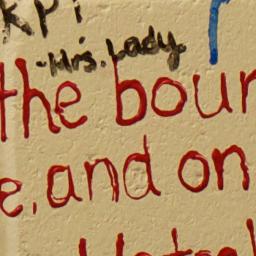 KPi
-Mrs. Lady
the bour
e, and on